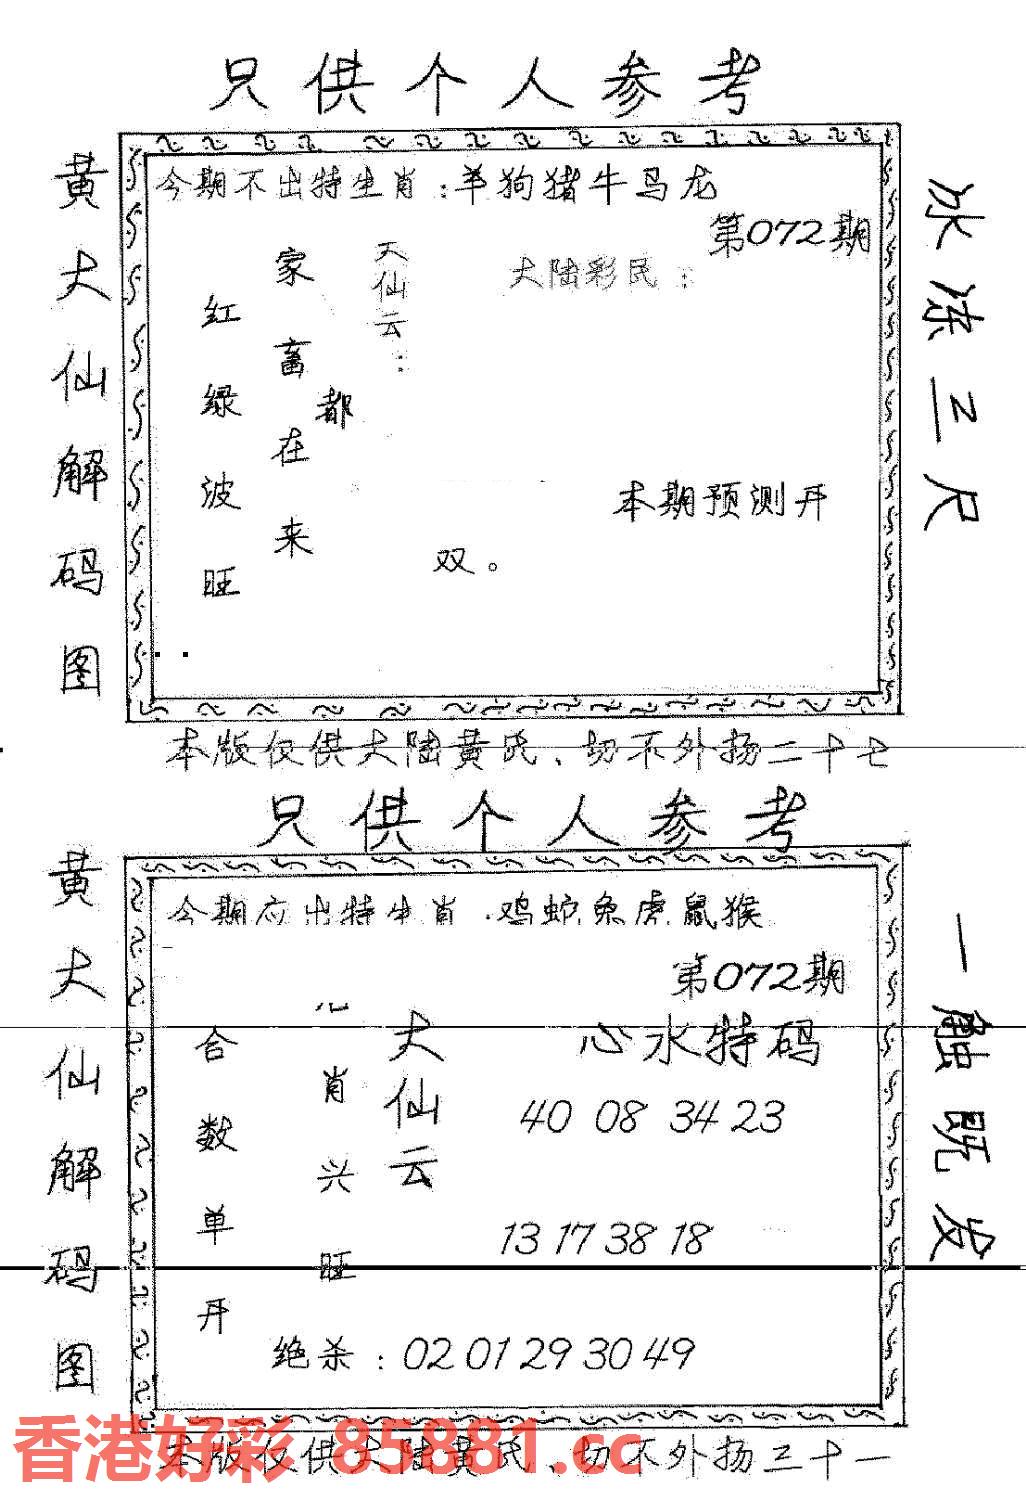 只供个人参考
黄大仙解码图
今期不出特生肖：羊狗猪牛马龙
第072期
大陆彩民：
天仙云：
家畜在来
都
红绿波旺
本期预测开
双。
冰冻三尺
本版仅供大陆黄氏、切不外扬二十七
只供个人参考
黄大仙解码图
今期应出特生肖．鸡蛇兔虎鼠猴
第072期
心水特码
大仙云
肖兴旺
合数单开
40 08 34 23
13 17 38 18
绝杀：02 01 29 30 49
一触既发
香港好彩 85881.cc
本版仅供大陆黄氏、切不外扬三十一